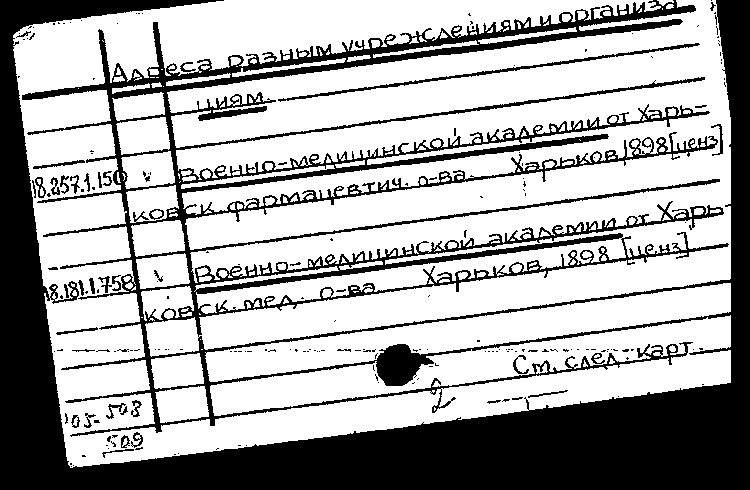 Адреса разным учреждениям и организа
циям.
18.257.1.150 v Военно-медицинской академии от Харь-
ковск. фармацевтич. о-ва. Харьков, 1898 [ценз]
18.181.1.758 v Военно-медицинской академии от Харь-
ковск. мед. о-ва Харьков, 1898 [ценз]
Ст. след. карт.
2
'05-508
509